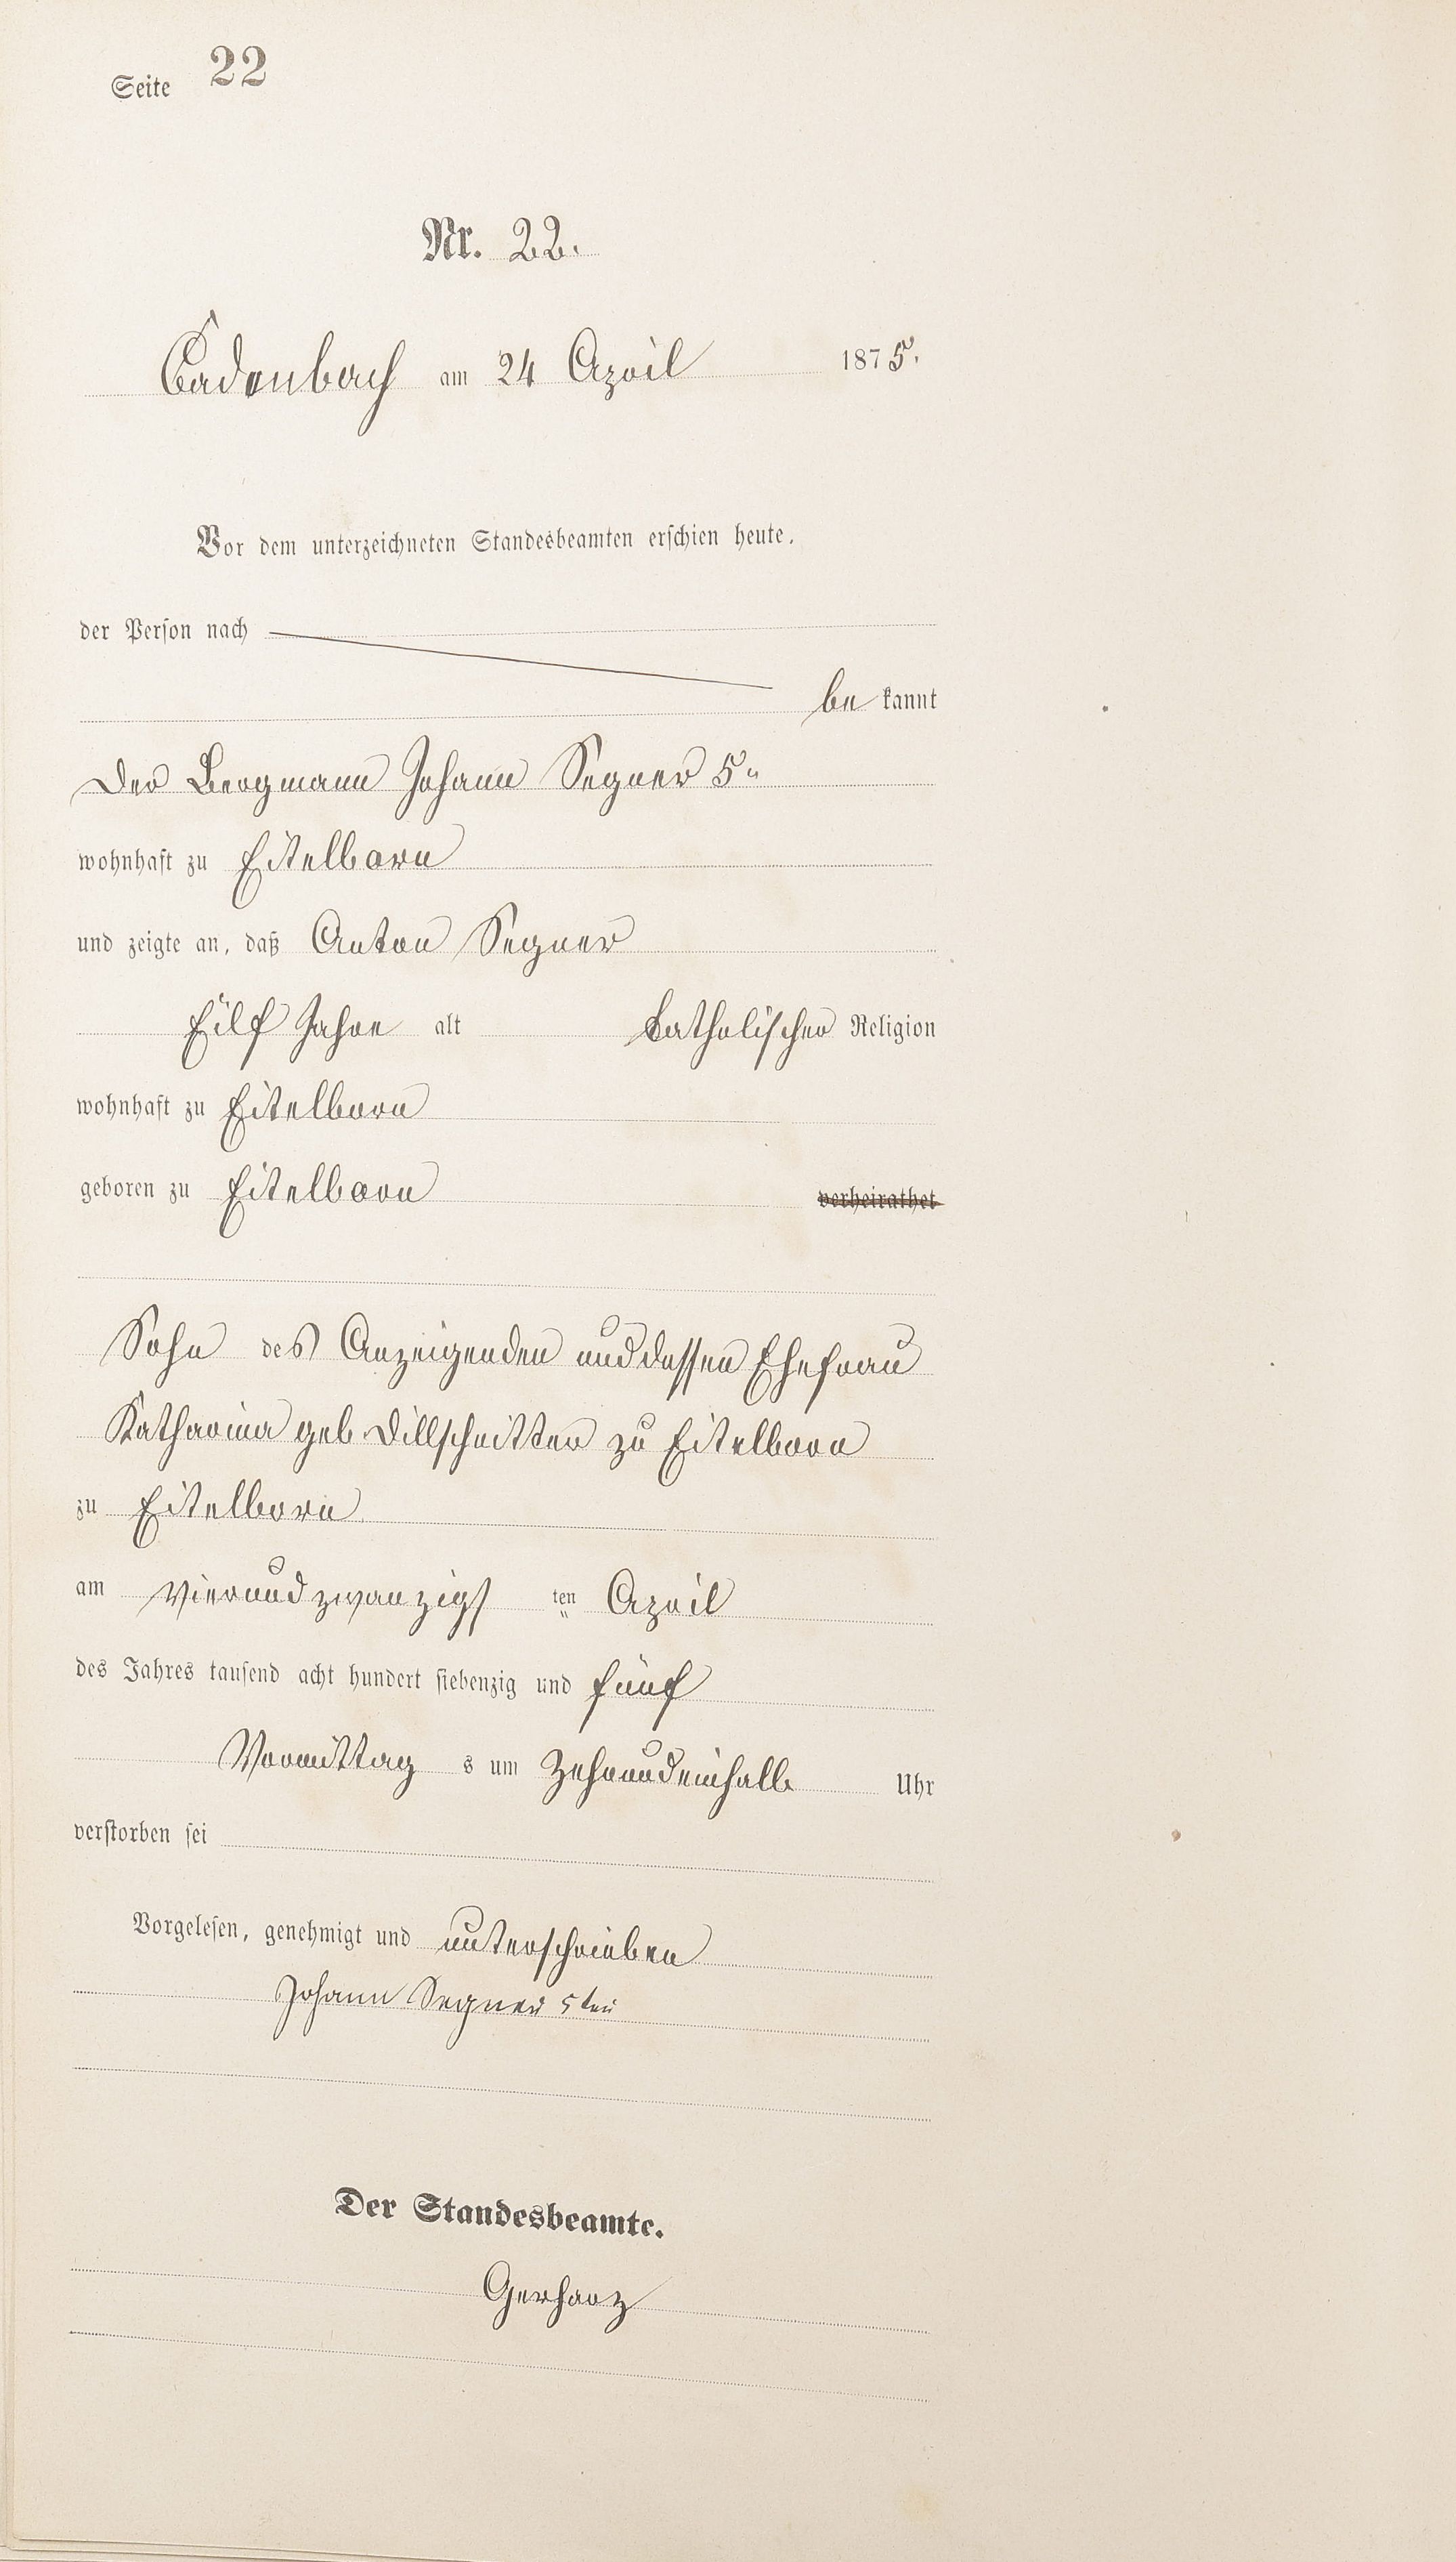 Seite 22
Nr. 22.
Cadenbach am 24 April 1875.
Vor dem unterzeichneten Standesbeamten erschien heute,
der Person nach
be kannt
Der Bergmann Johann Segner 5n
wohnhaft zu Eitelborn
und zeigte an, daß Anton Segner
Eilf Jahre alt katholischer Religion
wohnhaft zu Eitelborn
geboren zu Eitelborn verheirathet
Sohn des Anzeigenden und dessen Ehefrau
Katharina geb Dillschnitter zu Eitelborn
zu Eitelborn
am vierundzwanzigs ten April
des Jahres tausend acht hundert siebenzig und fünf
Vormittag s um Zehnundeinhalb Uhr
verstorben sei
Vorgelesen, genehmigt und unterschrieben
Johann Segner 5ten
Der Standesbeamte.
Gerharz